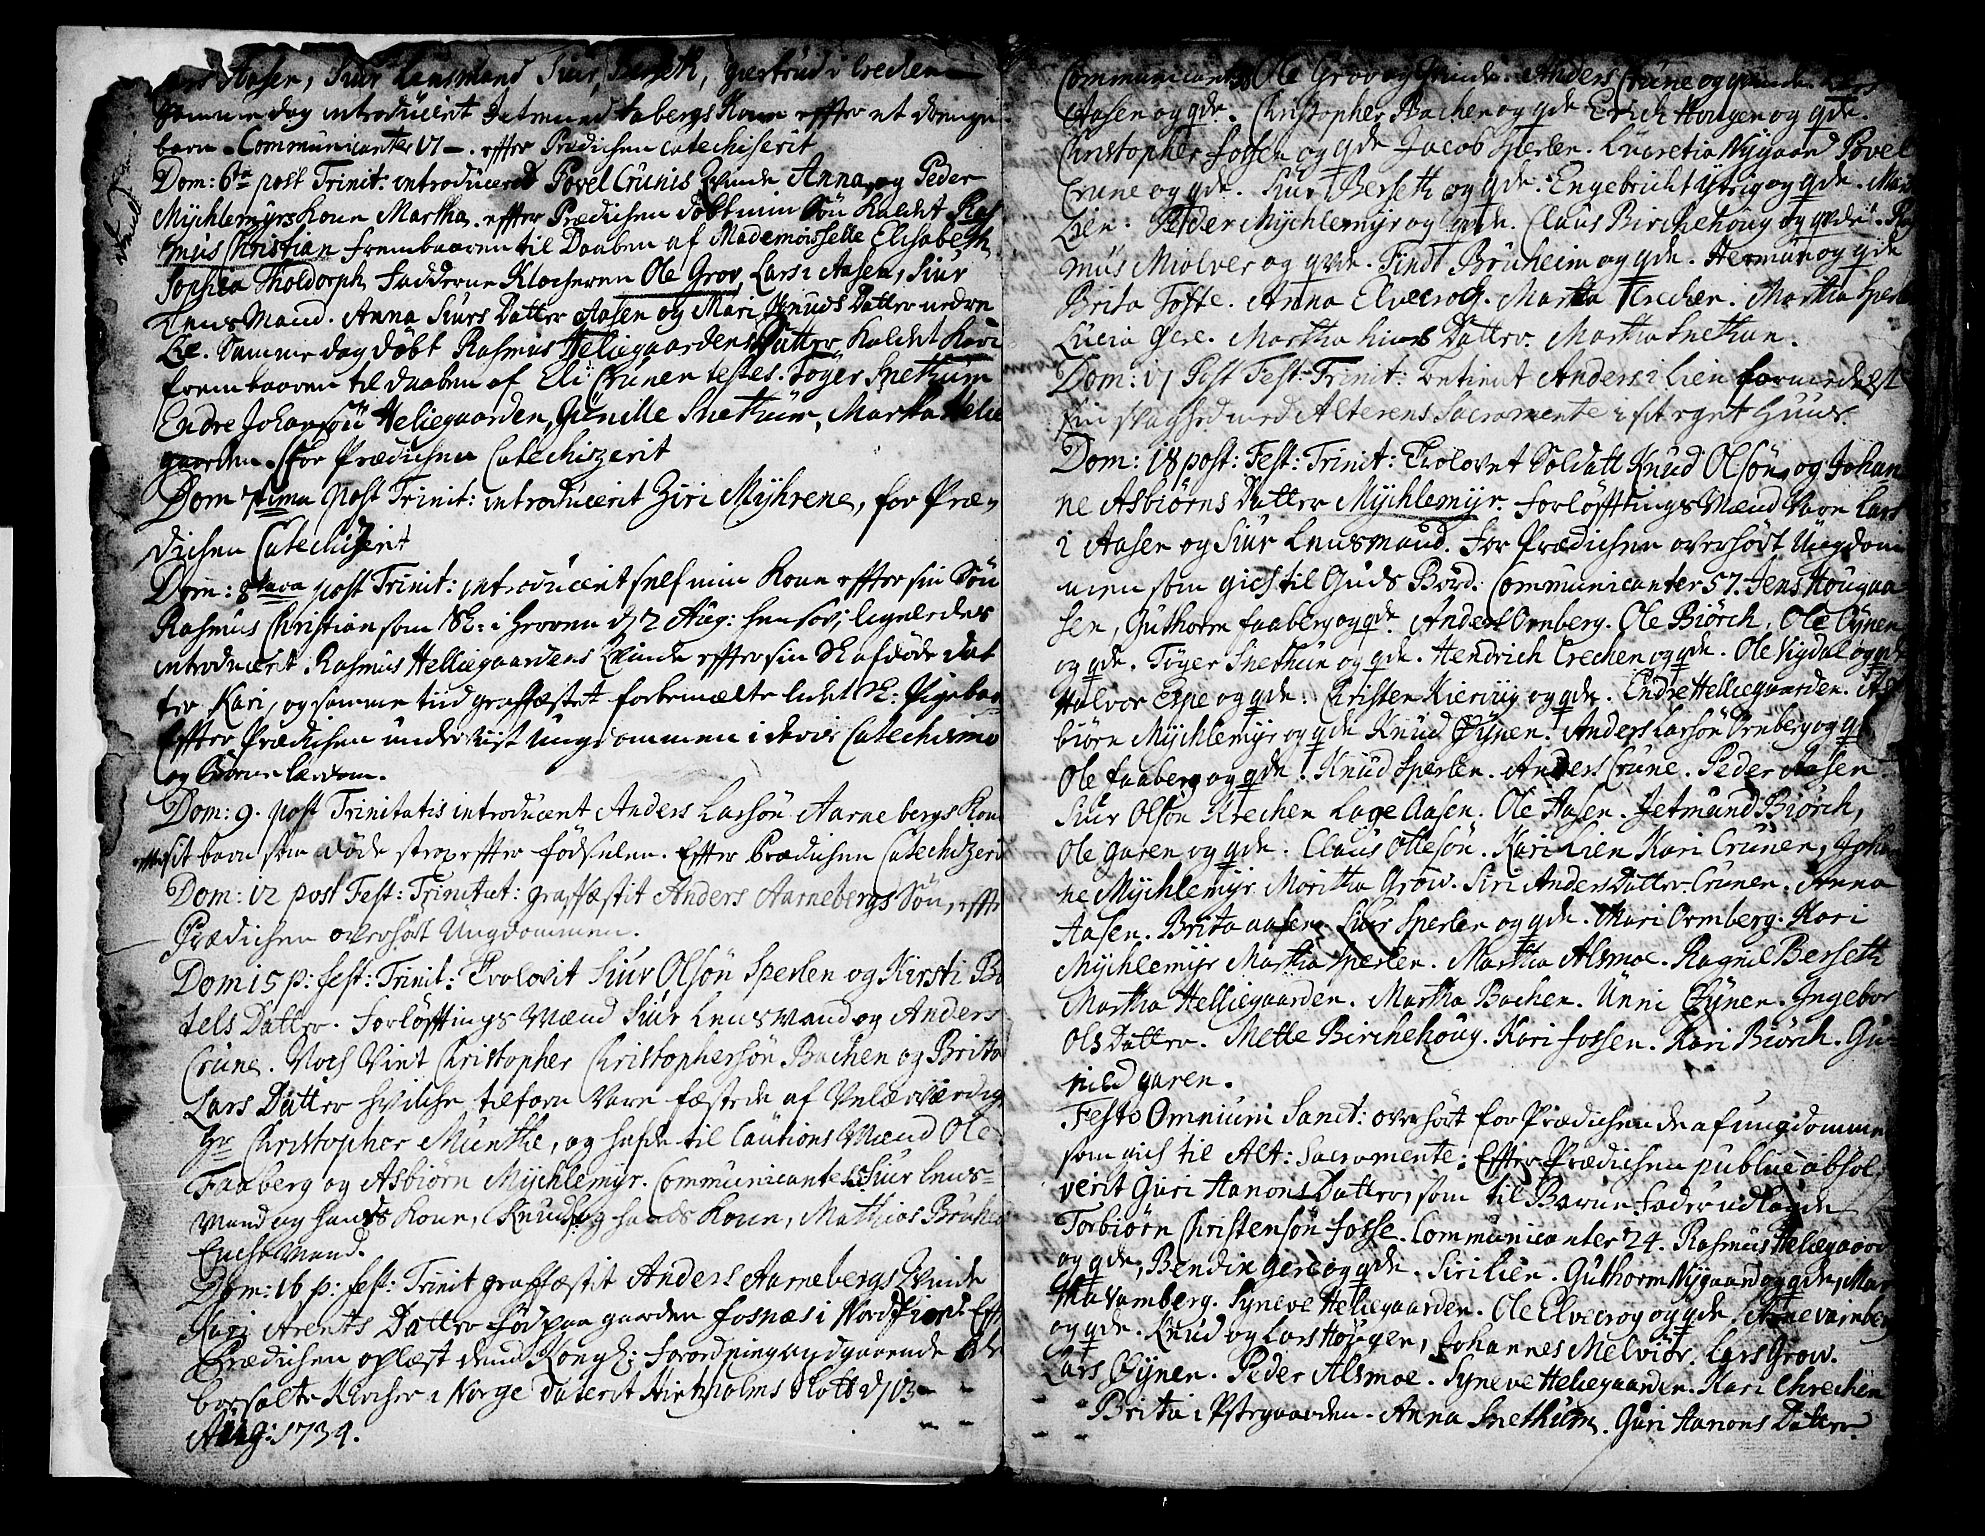 Lars Aasen, Siur Lensmand Siur Berseth, giertrud i Crechen
Samme dag introduceret Jetmund Faabergs Kone effter et drenge
barn. Communicanter 17 –. effter Prædichen catechiserit
Dom: 6ta post Trinit: introduceret Povel Crunis Qvinde Anna, og Peder
Mychlemyrs Kone Martha. effter Prædichen døbt min Søn kaldet Ras
mus Christian frembaaren til Daaben af Mademoiselle Elisabeth
Sophia Tholdorph Fadderne Klocheren Ole Grov, Lars i Aasen, Siur
Lensmand. Anna Siurs Datter Aasen og Mari Knuds Datter nedre
Lie. Samme dag døbt Rasmus Heliegaardens Datter kaldet Kari
frembaaren til daaben af Eli Crunen testes. Tøger Snethun
Endre Johansøn Heliegaarden, Gunille Snethun, Martha Helie
gaarden. for Prædichen Catechizerit
Dom 7tima post Trinit: introducerit Ziri Myhrene, for Præ-
dichen Catechizerit
Dom: 8tava post Trinit: introducerit self min Kone effter sin Søn
Rasmus Christian som Sl: i Herren d 2 Aug: hensov, ligeledes
introduceret Rasmus Helliegaardens Qvinde effter sin Sl afdøde Dat
ter Kari, og samme tiid graffæstet forbemælte lidet Sl: Pigebarn
Effter Prædichen underviist Ungdommen i deris Catechismo
og Børne lærdom.
Dom: 9. post Trinitatis introduceret Anders Larsøn Aarnebergs Kone
effter sit barn som døde strax effter fødselen. Effter Prædichen Catechizerit
Dom: 12 post Fest: Trinitat: graffæstit Anders Aarnebergs Søn, effter
Prædichen overhørt Ungdommen.
Dom 15 p: fest: Trinit: Trolovit Siur Olsøn Sperlen og Kirsti Bo
tels Datter. Forløfftings Mænd Siur Lensmand og Anders
Crune. Noch Viet Christopher Christophersøn Bachen og Britta
Lars Datter hvilche tilforn Vare fæstede af Velærværdig
Hr Christopher Munthe, og hafde til Cautions Mænd Ole
Faaberg og Asbiørn Mychlemyr. Communicantes Siur Lens-
mand og hands Kone, Knud og hands Kone, Mathias Bruheim
Enchemand.
Dom: 16 p: fest: Trinit graffæstit Anders Aarnebergs Qvinde
Kari Arents Datter Fød paa gaarden Fosnæs i Nordfiord Efft
Prædichen oplæst dend Kongl: Forordning angaaende
borsolte Kircher i Norge Daterit Hirtzholms Slott d 13
Aug: 1734.
Communicantes Ole Grov og Qvinde. Anders Crune og qvinde. Lars
Aasen og qde. Christopher Bachen og qde Erich Hougen og qde.
Christopher Fossen og qde Jacob Sperlen. Lucretia Nygaard Povel
Crune og qde. Siur Berseth og qde. Engebricht Ytrig og qde.
Lien. Peder Mychlemyr og qde. Claus Birchehoug og qvde. Ras
mus Miolver og qvde. Findt Bruheim og qde. Herman og qde
Brita Tofte. Anna Elvecroch. Martha Crechen. Martha Sperlen
Lucia Gere. Martha Siurs Datter. Martha Snethun.
Dom: 17 Post Fest Trinit: betient Anders i Lien formedelst
sin svaghed med Alterens Sacramente i sit eget Huus.
Dom: 18 post: Fest: Trinit: Trolovet Soldatt Knud Olsøn og Johan
ne Asbiørns Datter Mychlemyr. Forløfftings Mænd Vare Lars
i Aasen og Siur Lensmand. for Prædichen overhørt Ungdom
men som gich til Guds Bord. Communicanter 57. Jens Hougaa
sen, Guthorm Faaberg og qde. Anders Ormberg. Ole Biørch, Ole Øynen
og qde. Tøger Snethun og qde. Hendrich Crechen og qde. Ole Vigdal og qde
Halvor Espe og qde. Christen Kierring og qde. Endre Helliegaarden. As
biørn Mychlemyr og qde Knud Øynen. Anders Larsøn Ornberg og qde
Ole Faaberg og qde. Knud Sperlen. Anders Crune. Peder Aasen
Siur Olsøn Krechen Lage Aasen. Ole Aasen. Jetmund Biørch,
Ole Garen og qde. Claus Ottesøn. Kari Lien Kari Crunen, Johan
ne Mychlemyr. Moritha Grow. Siri Anders Datter Crunen. Anna
Aasen. Brita Aasen. Siur Sperlen og qde. Mari Ormberg. Kari
Mychlemyr Martha Sperlen. Martha Alsmoe. Ragnil Berseth
Martha Helliegaarden. Martha Bachen. Unni Øynen. Ingebor
Ols Datter. Mette Birchehoug. Kari Fossen. Kari Biørch. Gu-
nild Garen.
Festo Omnium Sanct: overhørt for Prædichen de af ungdommen
som gich til Alt: Sacramente: Effter Prædichen publice absol
verit Guri Hanons Datter, som til Barne Fader udlagde
Torbiørn Christensøn Fosse. Communicanter 24. Rasmus Heliegaard
og qde, Bendix Gere og qde. Siri Lien. Guthorm Nygaard og qde, Mar
tha Vamberg. Syneve Heliegaarden. Ole Elvecrog og qde, Arne Varnberg
og qde. Knud og Lars Hougen, Johannes Melvior. Lars Grow.
Lars Øynen. Peder Alsmoe. Syneve Heliegaarden. Kari Chrechen
Brita i Ystegaarden. Anna Snethun. Guri Hanons Datter.